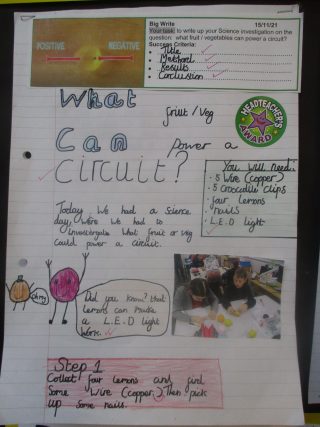 POSITIVE
NEGATIVE
Big Write
15/11/21
Your task: to write up your Science investigation on the
question: what fruit / vegetables can power a circuit?
Success Criteria:
Title
Method
Results
Conclusion
What
fruit / Veg
Can
Power a
circuit?
HEADTEACHER'S
AWARD
You will need:
5 Wire (copper)
5 Crocodile clips
four Lemons
nails
L.E.D light
Today We had a Science
day. Were We had to
investigate What fruit or veg
Could power a circuit.
Did you know? that
lemons can make
a L.E.D light
Work.
Step 1
Collect four lemons and find
Some Wire (copper). Then pick
up Some nails.